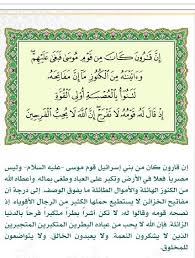 إِنَّ قَٰرُونَ كَانَ مِن قَوْمِ مُوسَىٰ فَبَغَىٰ عَلَيْهِمْ
وَءَاتَيْنَٰهُ مِنَ ٱلْكُنُوزِ مَآ إِنَّ مَفَاتِحَهُۥ
لَتَنُوٓأُ بِٱلْعُصْبَةِ أُو۟لِى ٱلْقُوَّةِ
إِذْ قَالَ لَهُۥ قَوْمُهُۥ لَا تَفْرَحْ إِنَّ ٱللَّهَ لَا يُحِبُّ ٱلْفَرِحِينَ
إن قارون كان من بني إسرائيل قوم موسى -عليه السلام- وليس
مصرياً فعلى في الأرض وتكبر على العباد وطغى بماله وأعطاه الله
من الكنوز الهائلة والأموال الطائلة ما يفوق الوصف، إلى درجة أن
مفاتيح الخزائن لا يستطيع حملها الكثير من الرجال الأقوياء، إذ
نصحه قومه وقالوا له، لا تكن أشراً بطراً متكبراً فرحاً بالدنيا
الزائفة، فإن الله لا يحب من عباده البطرين المتكبرين المتجبرين
الذين لا يشكرون النعمة ولا يعبدون الخالق، ولا يتواضعون
للمخلوق.